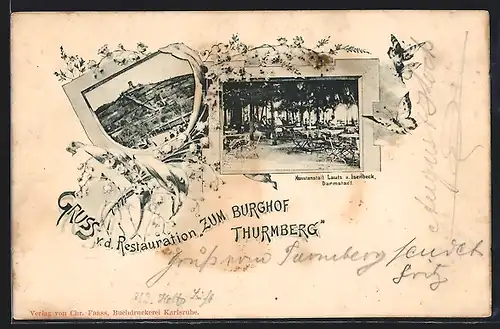 Kunstanstalt Lautz u. Isenbeck,
Darmstadt.
GRUSS v. d. Restauration „ZUM BURGHOF
THURMBERG"
Gruß vom Turmberg sendet
Fritz
Verlag von Chr. Faass, Buchdruckerei Karlsruhe.